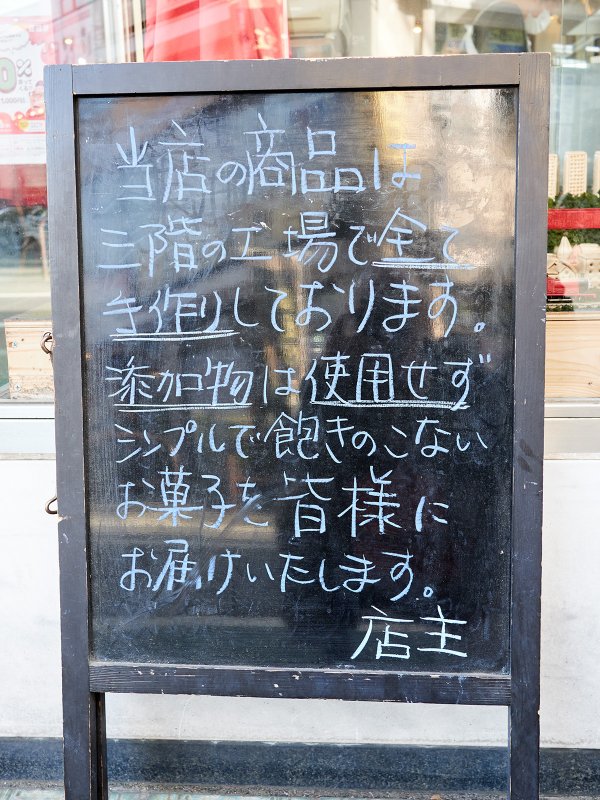 当店の商品は
三階の工場で全て
手作りしております。
添加物は使用せず
シンプルで飽きのこない
お菓子を皆様に
お届けいたします。
店主